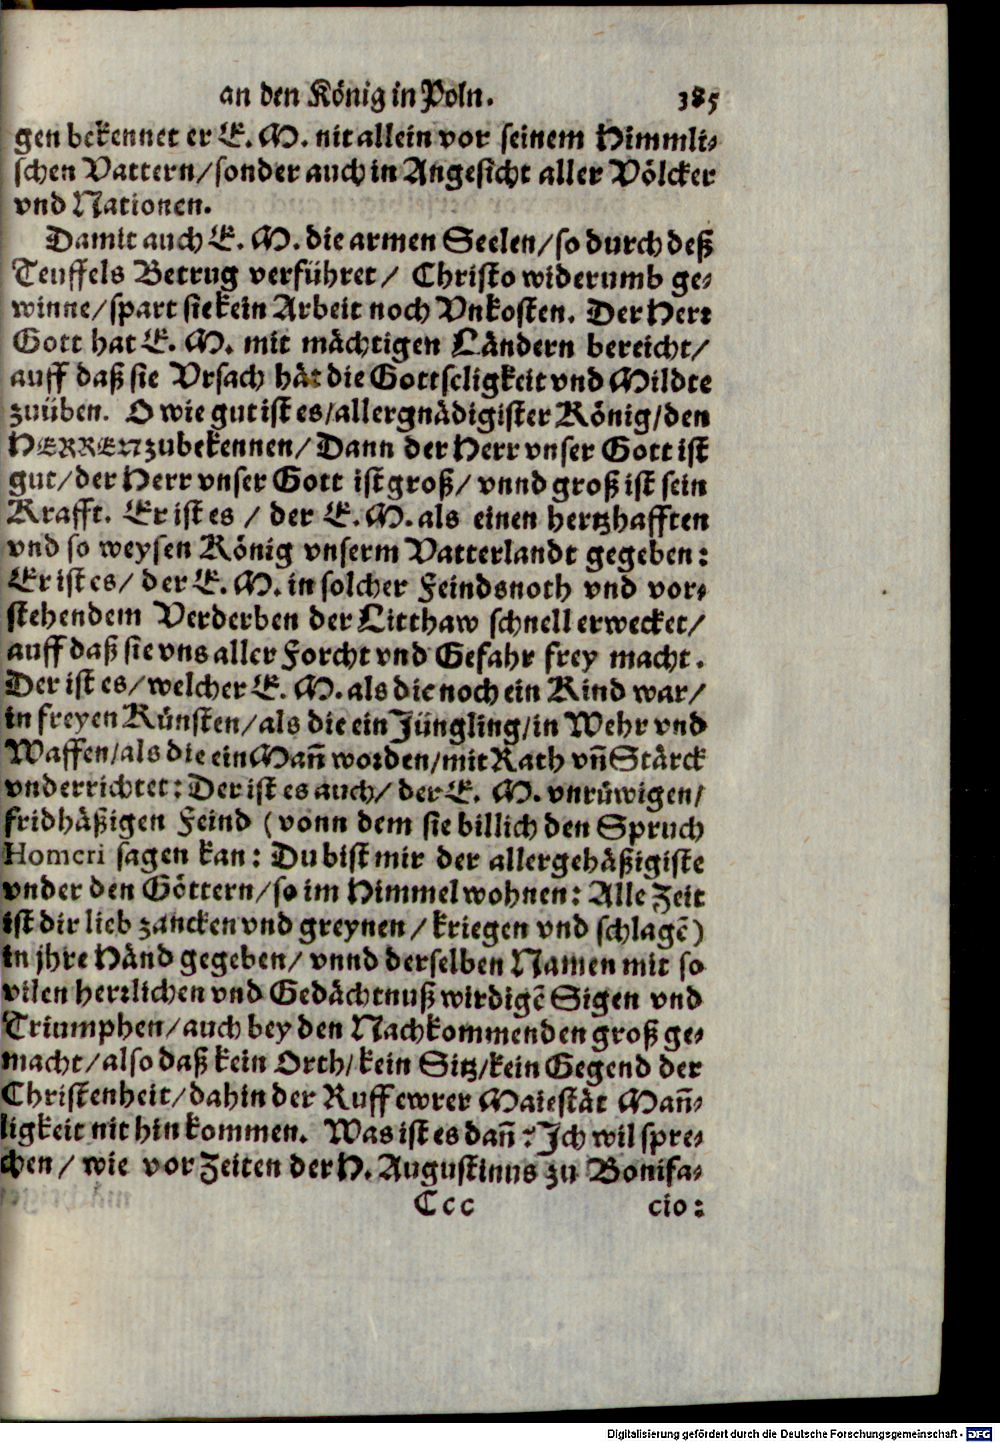 an den König in Poln. 385
gen bekennet er E. M. nit allein vor seinem Himmli-
schen Vattern/sonder auch in Angesicht aller Völcker
vnd Nationen.
Damit auch E. M. die armen Seelen/so durch deß
Teuffels Betrug verführet/ Christo widerumb ge-
winne/spart sie kein Arbeit noch Vnkosten. Der Herr
Gott hat E. M. mit mächtigen Ländern bereicht/
auff daß sie Vrsach hät die Gottseligkeit vnd Mildte
zuüben. O wie gut ist es/allergnädigister König/den
HERREN zubekennen/ Dann der Herr vnser Gott ist
gut/der Herr vnser Gott ist groß/ vnnd groß ist sein
Krafft. Er ist es / der E. M. als einen hertzhafften
vnd so weysen König vnserm Vatterlandt gegeben:
Er ist es/ der E. M. in solcher Feindsnoth vnd vor-
stehendem Verderben der Litthaw schnell erwecket/
auff daß sie vns aller Forcht vnd Gefahr frey macht.
Der ist es/welcher E. M. als die noch ein Kind war/
in freyen Künsten/als die ein Jüngling/in Wehr vnd
Waffen/als die ein Mañ worden/mit Rath vñ Stärck
vnderrichtet: Der ist es auch/ der E. M. vnrüwigen/
fridhäßigen Feind (vonn dem sie billich den Spruch
Homeri sagen kan: Du bist mir der allergehäßigiste
vnder den Göttern/so im Himmel wohnen: Alle Zeit
ist dir lieb zancken vnd greynen/kriegen vnd schlagẽ)
in jhre Händ gegeben/ vnnd derselben Namen mit so
vilen herrlichen vnd Gedächtnuß wirdigẽ Sigen vnd
Triumphen/auch bey den Nachkommenden groß ge-
macht/also daß kein Orth/kein Sitz/kein Gegend der
Christenheit/dahin der Ruff ewrer Maiestät Mañ-
ligkeit nit hin kommen. Was ist es dañ? Jch wil spre-
chen/ wie vor Zeiten der H. Augustinus zu Bonifa-
Ccc cio:
Digitalisierung gefördert durch die Deutsche Forschungsgemeinschaft - DFG